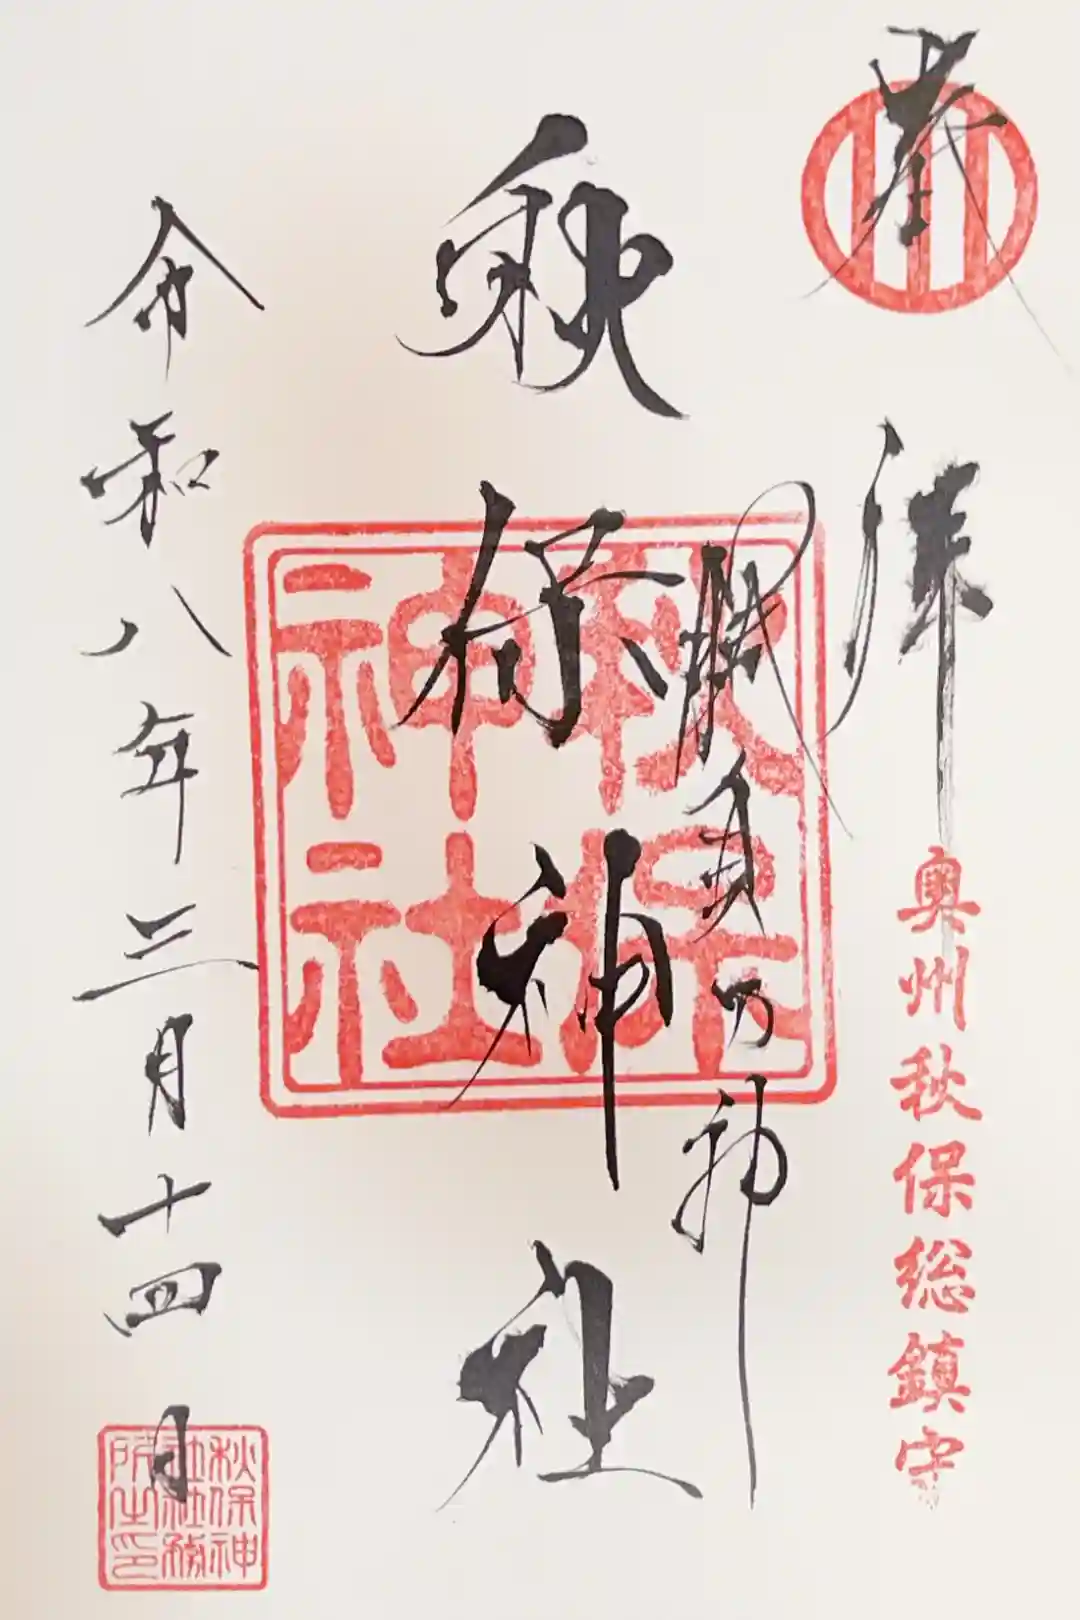 奉拝
奥州秋保総鎮守
勝負乃神
秋保神社
秋保
神社
令和八年三月十四日
秋保神
社社務
所之印